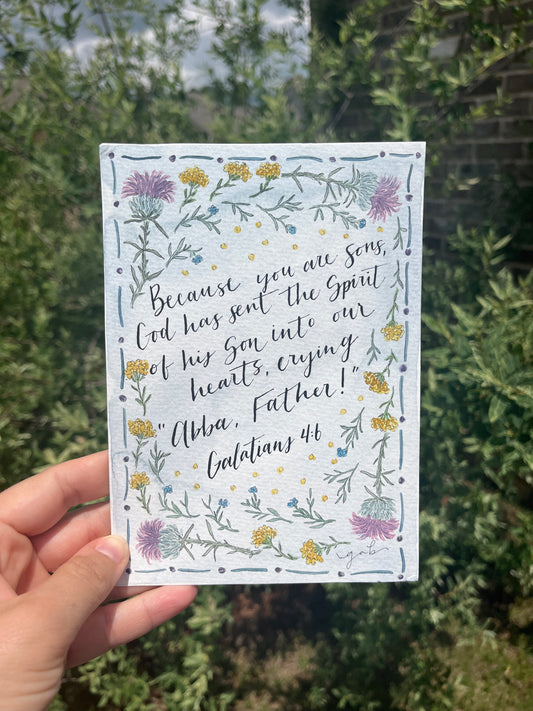 Because you are sons,
God has sent the Spirit
of his Son into our
hearts, crying
"Abba, Father!"
Galatians 4:6
gab